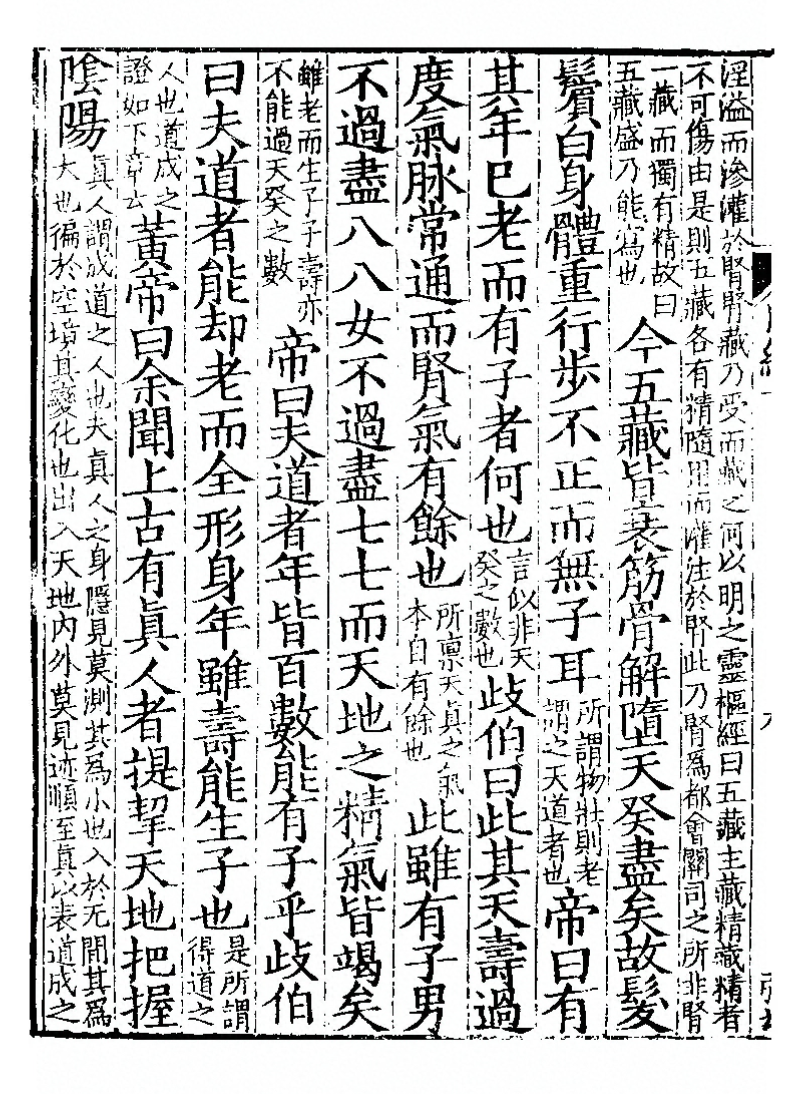 淫溢而滲灌於腎腎藏乃受而藏之何以明之靈樞經曰五藏主藏精藏精者
不可傷由是則五藏各有精隨用而灌注於腎此乃腎為都會關司之所非腎
一藏而獨有精故曰
五藏盛乃能寫也
今五藏皆衰筋骨解墮天癸盡矣故髮
鬢白身體重行步不正而無子耳
所謂物壯則老
謂之天道者也
帝曰有
其年已老而有子者何也
言似非天
癸之數也
歧伯曰此其天壽過
度氣脉常通而腎氣有餘也
所稟天真之氣
本自有餘也
此雖有子男
不過盡八八女不過盡七七而天地之精氣皆竭矣
雖老而生子子壽亦
不能過天癸之數
帝曰夫道者年皆百數能有子乎歧伯
曰夫道者能却老而全形身年雖壽能生子也
是所謂
得道之
人也道成之
證如下章云
黃帝曰余聞上古有眞人者提挈天地把握
陰陽
眞人謂成道之人也夫眞人之身隱見莫測其為小也入於无間其為
大也徧於空境其變化也出入天地內外莫見迹順至眞以表道成之